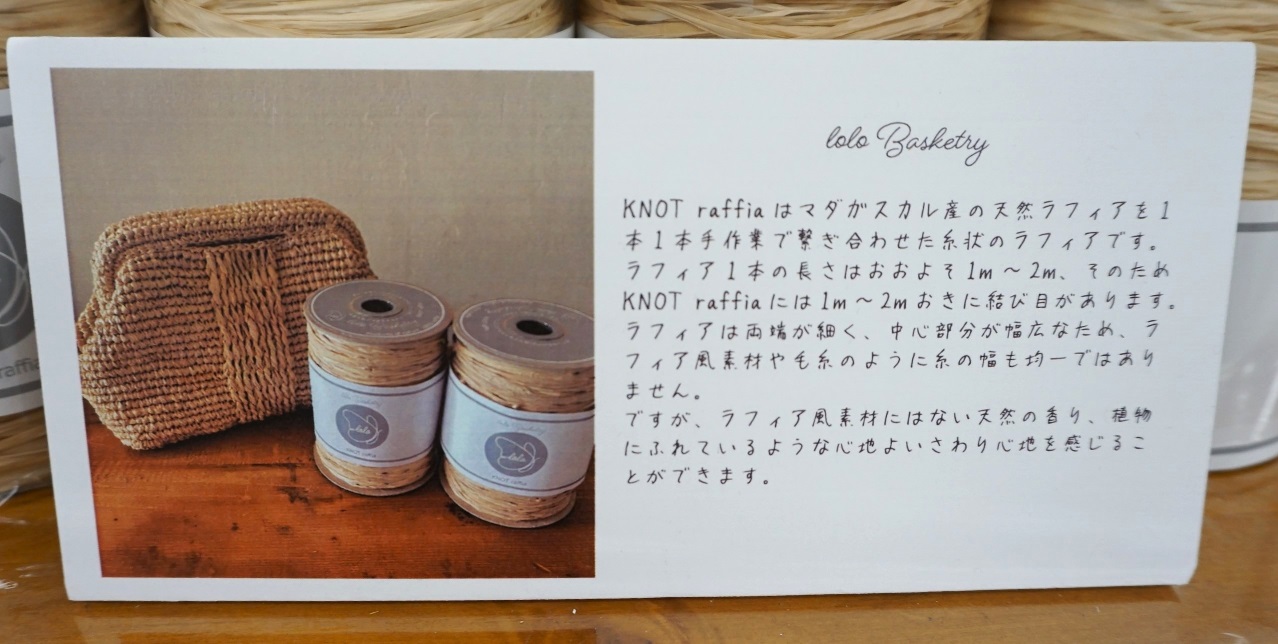 lolo Basketry
KNOT raffiaはマダガスカル産の天然ラフィアを1
本1本手作業で繋ぎ合わせた糸状のラフィアです。
ラフィア1本の長さはおおよそ1m～2m、そのため
KNOT raffiaには1m～2mおきに結び目があります。
ラフィアは両端が細く、中心部分が幅広なため、ラ
フィア風素材や毛糸のように糸の幅も均一ではあり
ません。
ですが、ラフィア風素材にはない天然の香り、植物
にふれているような心地よいさわり心地を感じるこ
とができます。
lolo
lolo
raffia